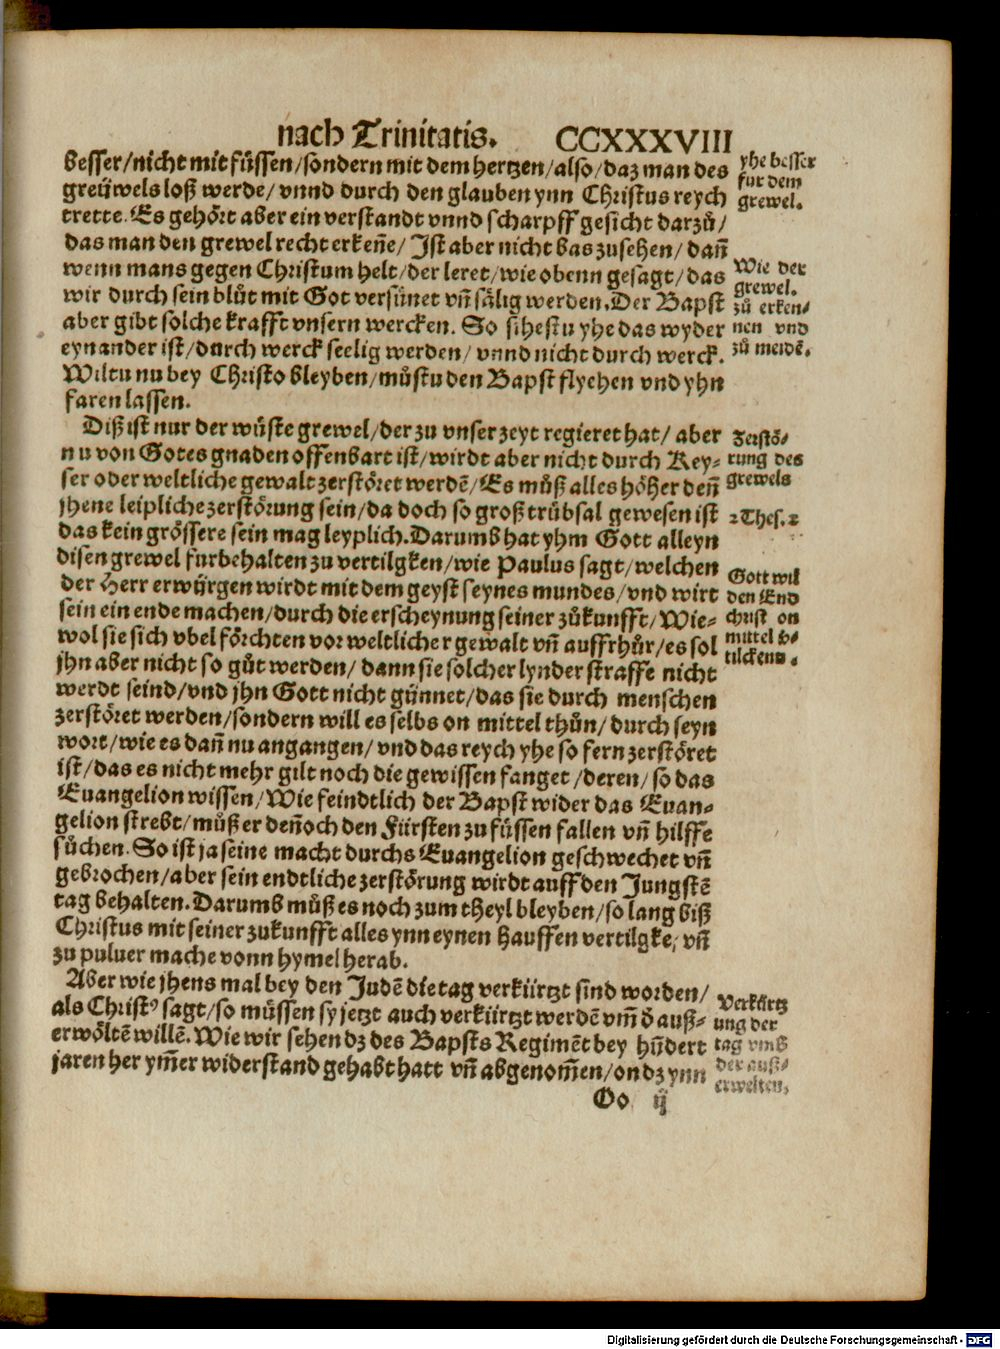 nach Trinitatis. CCXXXVIII
besser/nicht mit füssen/sondern mit dem hertzen/also/daz man des
greüwels loß werde/ vnnd durch den glauben ynn Christus reych
trette. Es gehört aber ein verstandt vnnd scharpff gesicht darzů/
das man den grewel recht erkeñe/ Ist aber nicht bas zusehen/ dañ
wenn mans gegen Christum helt/der leret/wie obenn gesagt/das
wir durch sein blůt mit Got versünet vñ sälig werden. Der Bapst
aber gibt solche krafft vnsern wercken. So sihestu yhe das wyder
eynander ist/durch werck seelig werden/ vnnd nicht durch werck.
Wiltu nu bey Christo bleyben/můstu den Bapst flychen vnd yhn
faren lassen.
yhe besser
fur dem
grewel.
Wie der
grewel.
zů erken/
nen vnd
zů meidē.
Diß ist nur der wůste grewel/der zu vnser zeyt regieret hat/ aber
nu von Gotes gnaden offenbart ist/wirdt aber nicht durch Key-
ser oder weltliche gewalt zerstöret werdē/Es můß alles höher deñ
jhene leipliche zerstörung sein/da doch so groß trübsal gewesen ist
das kein grössere sein mag leyplich. Darumb hat yhm Gott alleyn
disen grewel furbehalten zu vertilgken/wie Paulus sagt/welchen
der Herr erwürgen wirdt mit dem geyst seynes mundes/vnd wirt
sein ein ende machen/durch die erscheynung seiner zůkunfft/Wie-
wol sie sich vbel förchten vor weltlicher gewalt vñ auffrhůr/es sol
jhn aber nicht so gůt werden/ dann sie solcher lynder straffe nicht
werdt seind/vnd jhn Gott nicht günnet/das sie durch menschen
zerstöret werden/sondern will es selbs on mittel thůn/durch seyn
wort/wie es dañ nu angangen/ vnd das reych yhe so fern zerstöret
ist/das es nicht mehr gilt noch die gewissen fanget/deren/so das
Euangelion wissen/Wie feindtlich der Bapst wider das Euan-
gelion strebt/můß er deñoch den Fürsten zu füssen fallen vñ hilffe
sůchen. So ist ja seine macht durchs Euangelion geschwechet vñ
gebrochen/aber sein endtliche zerstörung wirdt auff den Jungstē
tag behalten. Darumb můß es noch zum theyl bleyben/so lang biß
Christus mit seiner zukunfft alles ynn eynen hauffen vertilgke/ vñ
zu puluer mache vonn hymel herab.
Zerstö/
rung des
grewels
2 Thes. 2
Gott wil
den End
christ on
mittel
Aber wie jhens mal bey den Judē die tag verkürtzt sind worden/
als Christ⁹ sagt/so müssen sy jetzt auch verkürtzt werdē vm̃ d̄ auß-
erwöltē willē. Wie wir sehen dz des Bapsts Regimēt bey hūdert
jaren her ym̃er widerstand gehabt hatt vñ abgenom̃en/on dz ynn
Verkürtz
ung der
tag vmb
der auß-
erwelten.
Oo ij
Digitalisierung gefördert durch die Deutsche Forschungsgemeinschaft - DFG